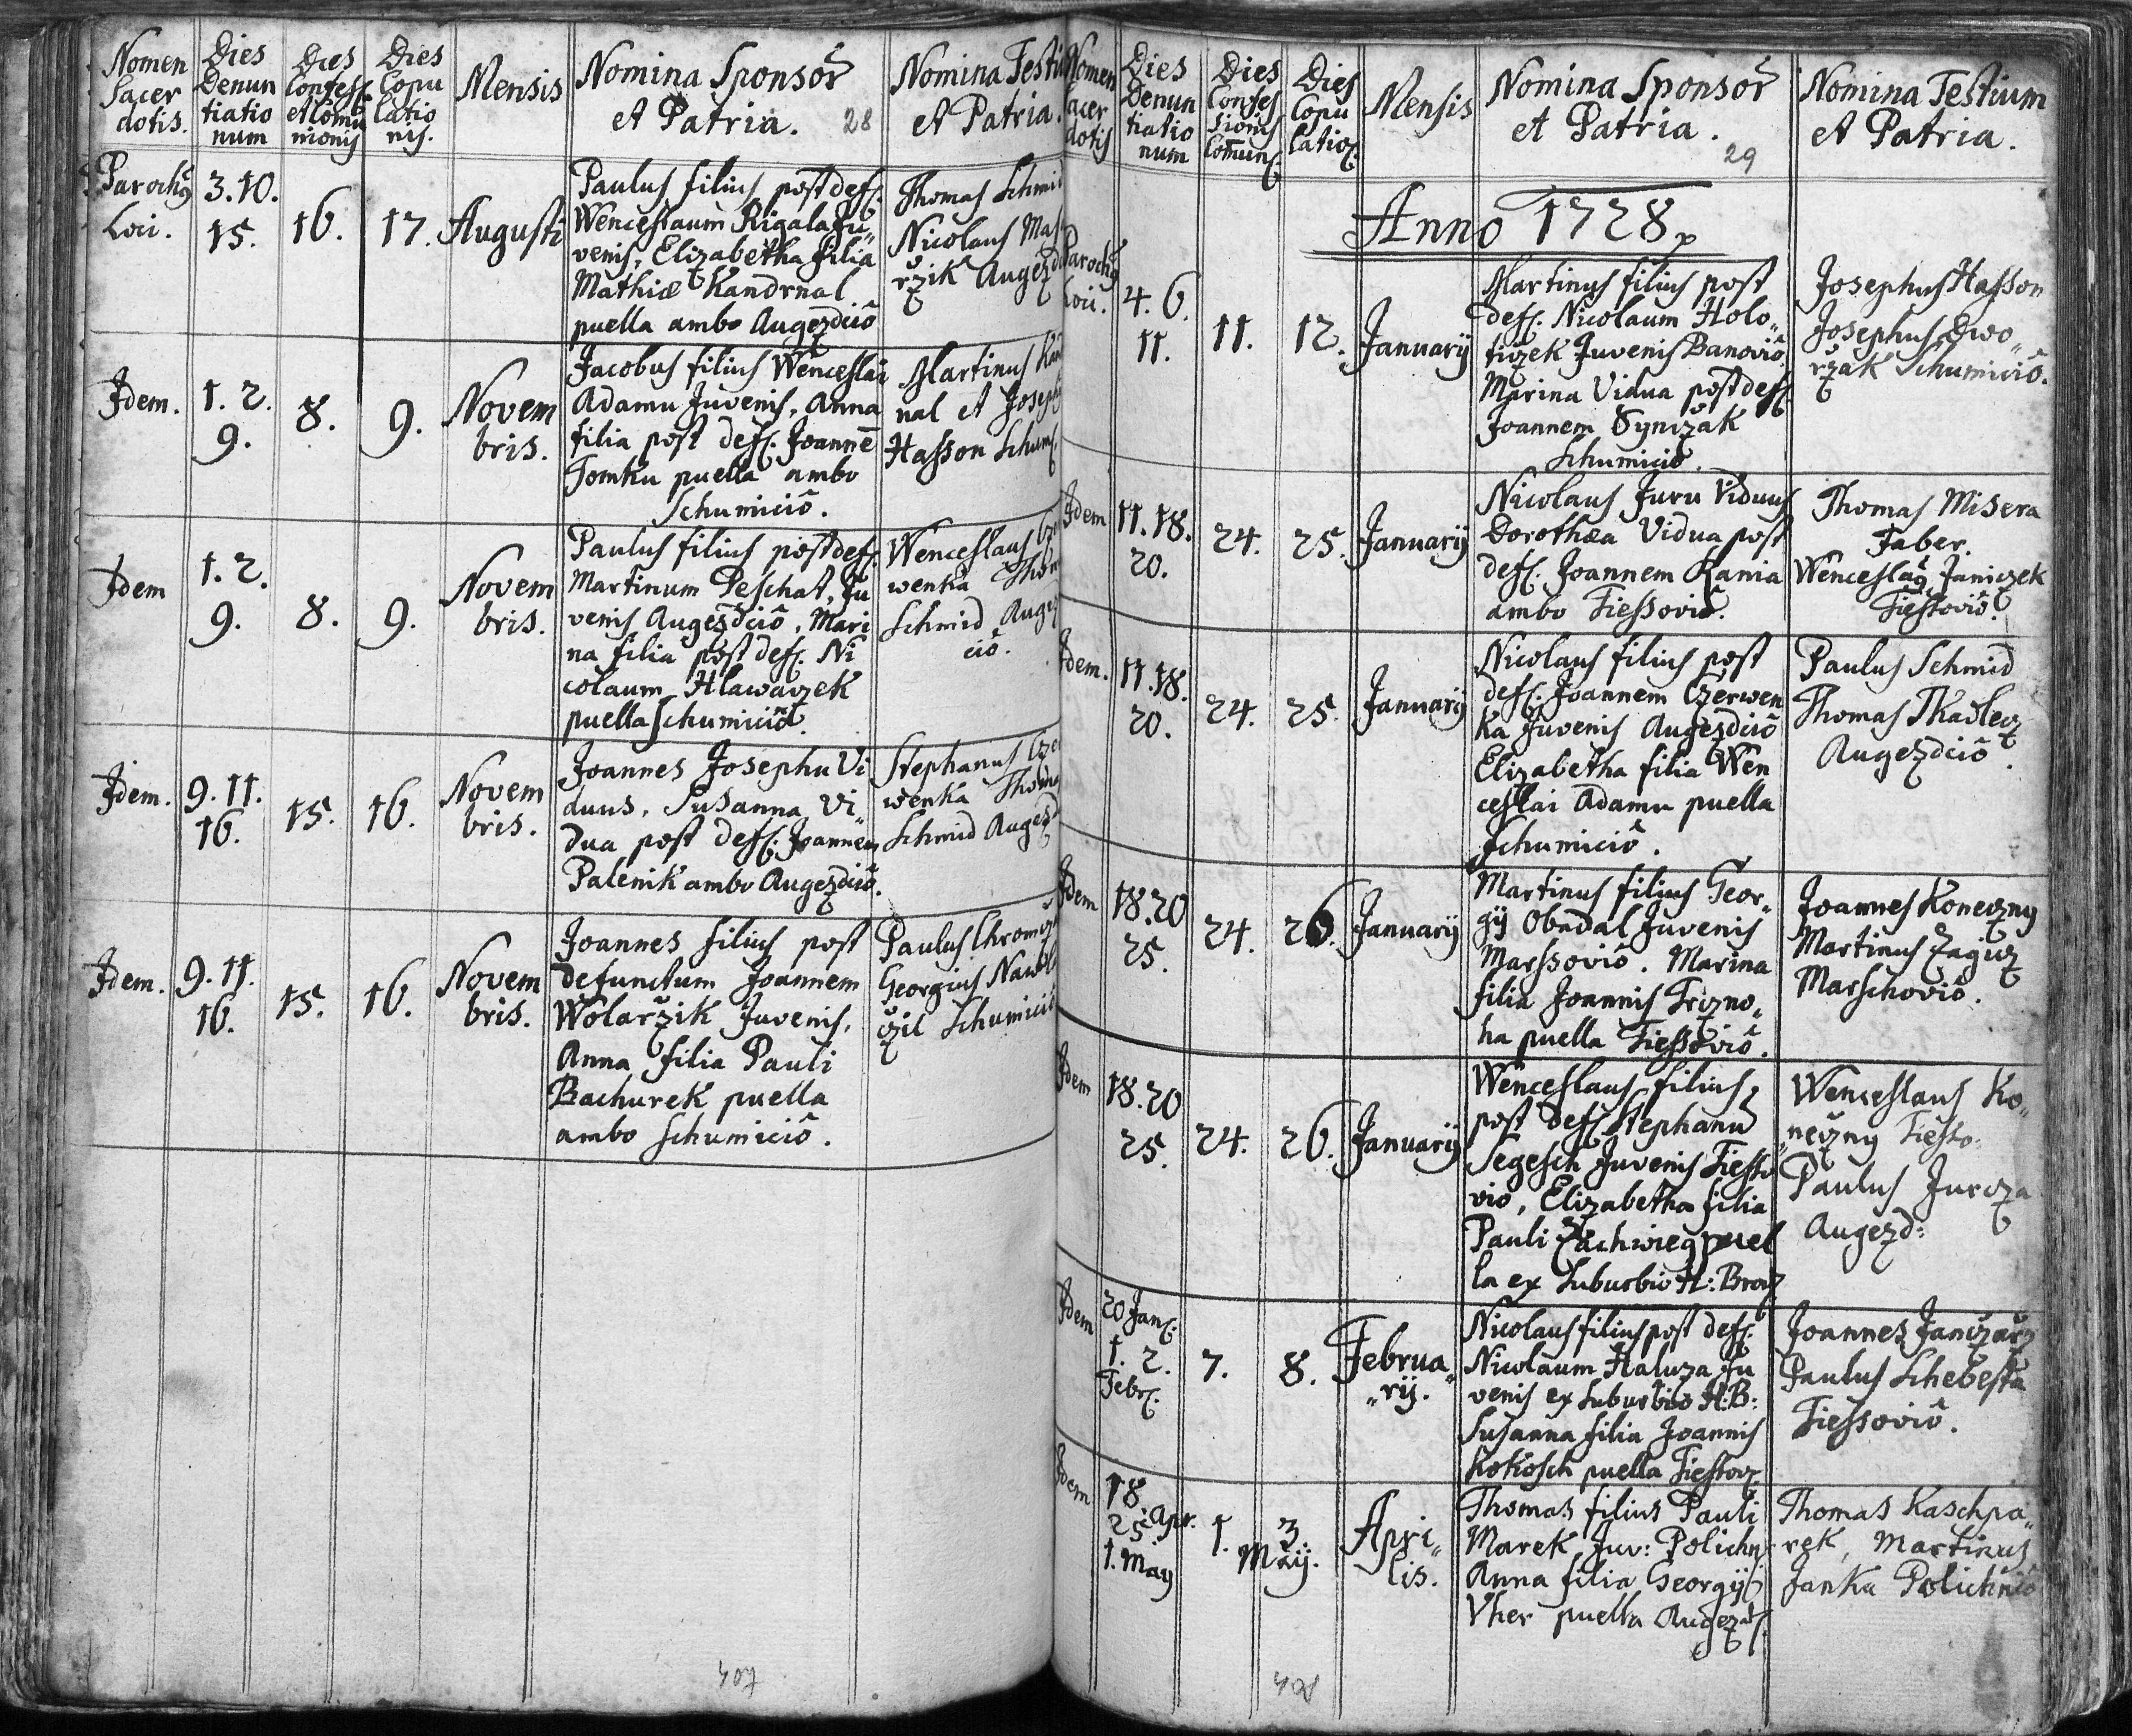 Nomen
Sacer
dotis.
Dies
Denun
tiatio
num
Dies
Confess
et Comu
nionis
Dies
Copu
latio
nis.
Mensis
Nomina Sponsor
et Patria. 28
Nomina Testi
et Patria.
Parochg
Loci.
3. 10.
15.
16.
17.
Augusti
Paulus filius post def.
Wenceslaum Rigala Ju„
venis, Elizabetha filia
Mathiæ Kandrnal
puella ambo Augezdciō
Thomas Schmi
Nicolaus Mas
rzik Augezd
Idem.
1. 2.
9.
8.
9.
Novem
bris.
Jacobus filius Wenceslai
Adamu Juvenis, Anna
filia post def. Joannē
Tomku puella ambo
Schumiciō.
Martinus Kan
nal et Joseph
Hasson Schum.
Idem
1. 2.
9.
8.
9.
Novem
bris.
Paulus filius post def.
Martinum Peschat, Ju
venis Augezdciō, Mari
na filia post def. Ni
colaum Hlawaczek
puella Schumiciō.
Wenceslaus Cze
wenka Thom
Schmid Augez
ciō.
Idem.
9. 11.
16.
15.
16.
Novem
bris.
Joannes Josephu Vi
duus, Susanna Vi„
dua post def. Joannem
Palenik ambo Augezdciō.
Stephanus Cze
wenka Thoma
Schmid Augezd
Idem.
9. 11.
16.
15.
16.
Novem
bris.
Joannes filius post
defunctum Joannem
Wolarzik Juvenis,
Anna filia Pauli
Bachurek puella
ambo Schumiciō.
Paulus Chromcz
Georgius Nawra
czil Schumiciō
407
Nomen
Sacer
dotis
Dies
Denun
tiatio
num
Dies
Confes
sionis
Comun.
Dies
Copu
latio.
Mensis
Nomina Sponsor
et Patria.
29
Nomina Testium
et Patria.
Anno 1728
Parochg
Loci.
4. 6.
11.
11.
12.
Januarij
Martinus filius post
def. Nicolaum Holo„
ticzek Juvenis Banoviō
Marina Vidua post def.
Joannem Synczak
Schumiciō.
Josephus Hasson
Josephus Dwo„
rzak Schumiciō.
Idem
11. 18.
20.
24.
25.
Januarij
Nicolaus Juru Viduus
Dorothæa Vidua post
def. Joannem Kania
ambo Tiessoviō.
Thomas Misera
Faber.
Wenceslag Janiczek
Tiessoviō.
Idem.
11. 18.
20.
24.
25.
Januarij
Nicolaus filius post
def. Joannem Czerwen
ka Juvenis Augezdciō
Elizabetha filia Wen
ceslai Adamu puella
Schumiciō.
Paulus Schmid
Thomas Tkadlecz
Augezdciō.
Idem
18. 20
25.
24.
26.
Januarij
Martinus filius Geor„
gij Obadal Juvenis
Marssoviō. Marina
filia Joannis Trizno„
ha puella Tiessoviō.
Joannes Koneczny
Martinus Zagicz
Marschoviō.
Idem
18. 20
25.
24.
26.
Januarij
Wenceslaus filius
post def. Stephanū
Segesch Juvenis Tiesso
viō, Elizabetha filia
Pauli Zachwieg puel
la ex Suburbio H: Brod
Wenceslaus Ko„
neczny Tiesso.
Paulus Jurcza
Augezd:
Idem
20 Jan.
1. 2.
Febr.
7.
8.
Februa„
„rij.
Nicolaus filius post def.
Nicolaum Haluza Ju
venis ex Suburbio H:B:
Susanna filia Joannis
Kokosch puella Tiessov.
Joannes Janczarz
Paulus Schebesta
Tiessoviō.
Idem
18.
25. Apr.
1. May
1.
3
Maij.
Apri„
lis.
Thomas filius Pauli
Marek Juv: Polichn
Anna filia Georgij
Vher puella Augezd.
Thomas Kaschpa„
rek, Martinus
Janka Polichniō
408